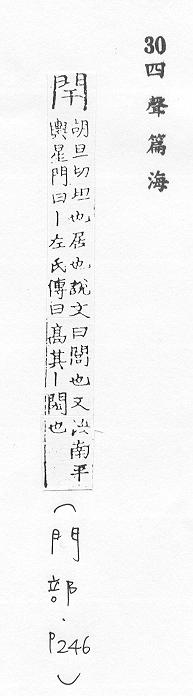 30四聲篇海
閈
胡旦切坦也居也說文曰閭也又汝南平
輿呈門曰丨左氏傳曰高其丨閎也
(門部.P246)